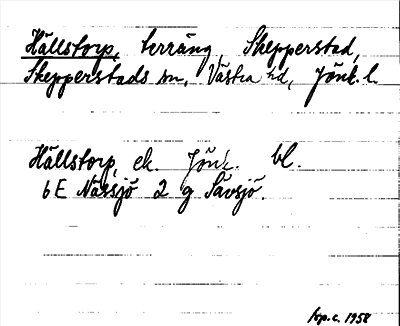 Hällstorp, terräng, Skepperstad,
Skepperstads sn, Västra hd, Jönk. l.
Hällstorp, ek. Jönk. bl.
6E Nässjö 2 g Sävsjö.
top.c. 1958